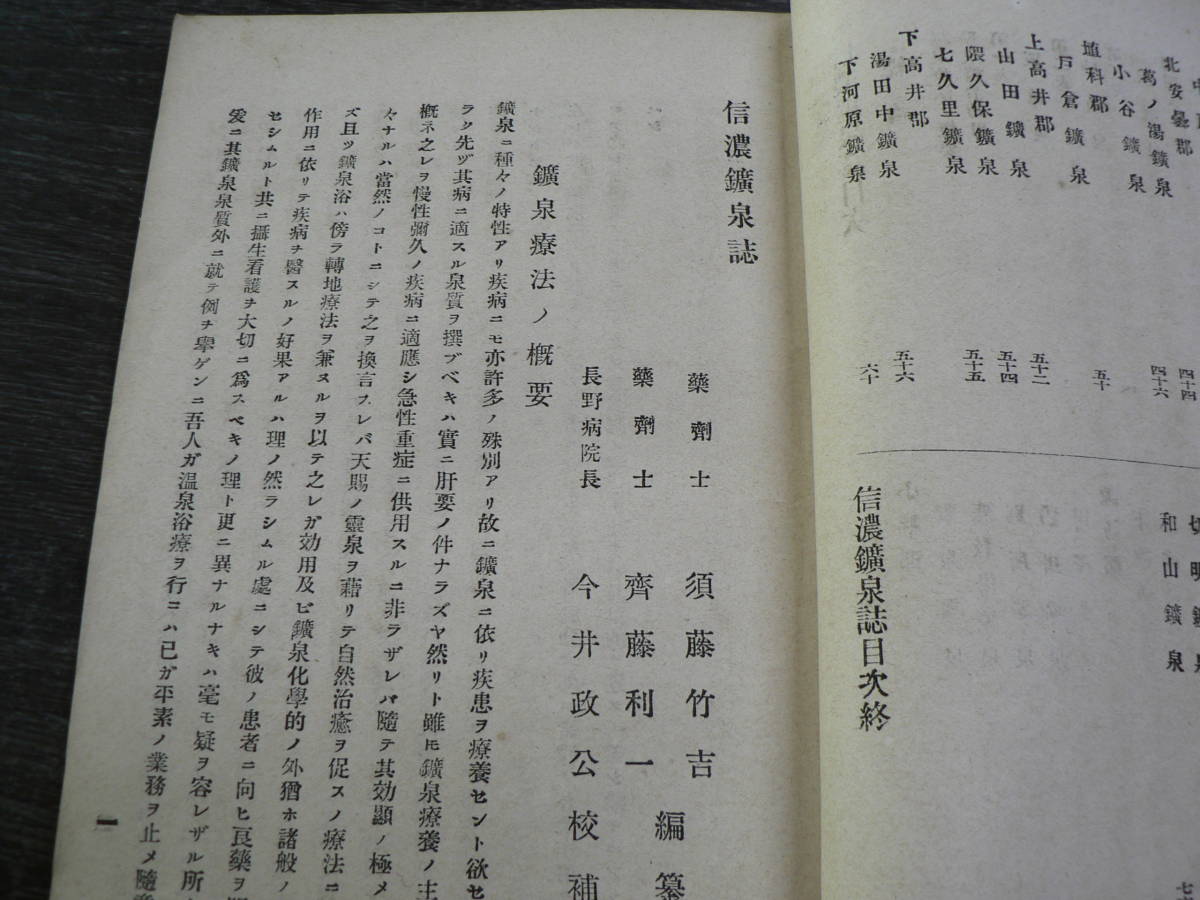 北安曇郡
葛ノ湯鑛泉
四十四
小谷鑛泉
四十六
埴科郡
戸倉鑛泉
五十
上高井郡
山田鑛泉
五十二
隈久保鑛泉
五十四
七久里鑛泉
五十五
下高井郡
湯田中鑛泉
五十六
下河原鑛泉
六十
切明鑛泉
和山鑛泉
信濃鑛泉誌目次終
信濃鑛泉誌
藥劑士 須藤竹吉
藥劑士 齊藤利一
編纂
長野病院長 今井政公校補
鑛泉療法ノ概要
鑛泉ニ種々ノ特性アリ疾病ニモ亦許多ノ殊別アリ故ニ鑛泉ニ依リ疾患ヲ療養セント欲セ
ラク先ヅ其病ニ適スル泉質ヲ撰ブベキハ實ニ肝要ノ件ナラズヤ然リト雖モ鑛泉療養ノ主
概ネ之レヲ慢性彌久ノ疾病ニ適應シ急性重症ニ供用スルニ非ラザレバ隨テ其効顯ノ極メ
々ナルハ當然ノコトニシテ之ヲ換言スレバ天賜ノ靈泉ヲ藉リテ自然治癒ヲ促スノ療法ニ
ズ且ツ鑛泉浴ハ傍ラ轉地療法ヲ兼スルヲ以テ之レガ効用及ビ鑛泉化學的ノ外猶ホ諸般ノ
作用ニ依リテ疾病ヲ醫スルノ好果アルハ理ノ然ラシムル處ニシテ彼ノ患者ニ向ヒ良藥ヲ
セシムルト共ニ攝生看護ヲ大切ニ爲スベキノ理ト更ニ異ナルナキハ毫モ疑ヲ容レザル所
爰ニ其鑛泉泉質外ニ就テ例ヲ擧ゲンニ吾人ガ温泉浴療ヲ行ニハ已ガ平素ノ業務ヲ止メ隨意
一